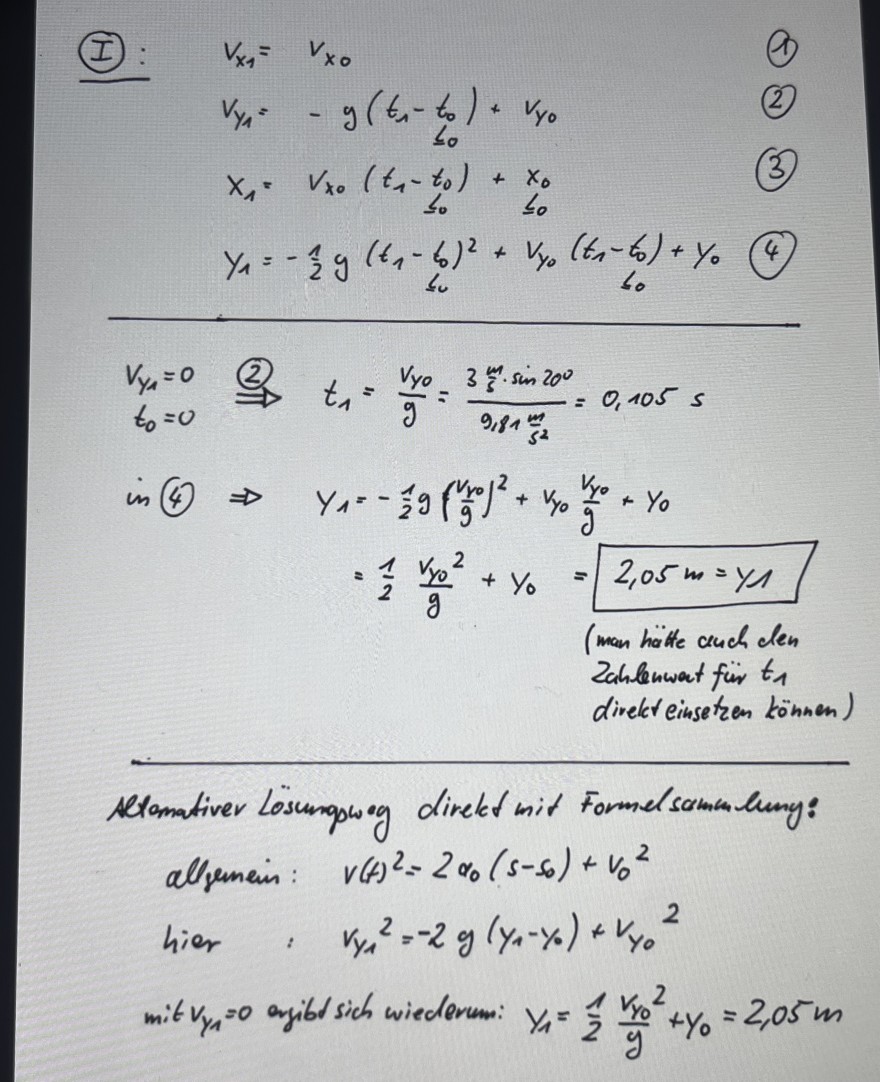 I : Vx1 = Vx0 ①
Vy1 = - g (t1 - t0) + Vy0 ②
↳0
x1 = Vx0 (t1 - t0) + x0 ③
↳0 ↳0
y1 = - 1/2 g (t1 - t0)² + Vy0 (t1 - t0) + y0 ④
↳0 ↳0
Vy1 = 0 ② ⇒ t1 = Vy0/g = (3 m/s · sin 20°)/(9,81 m/s²) = 0,105 s
t0 = 0
in ④ ⇒ y1 = - 1/2 g (Vy0/g)² + Vy0 Vy0/g + y0
= 1/2 Vy0²/g + y0 = 2,05 m = y1
(man hätte auch den
Zahlenwert für t1
direkt einsetzen können)
Alternativer Lösungsweg direkt mit Formelsammlung:
allgemein: v(t)² = 2 a0 (s - s0) + v0²
hier : Vy1² = -2 g (y1 - y0) + Vy0²
mit Vy1 = 0 ergibt sich wiederum: y1 = 1/2 Vy0²/g + y0 = 2,05 m